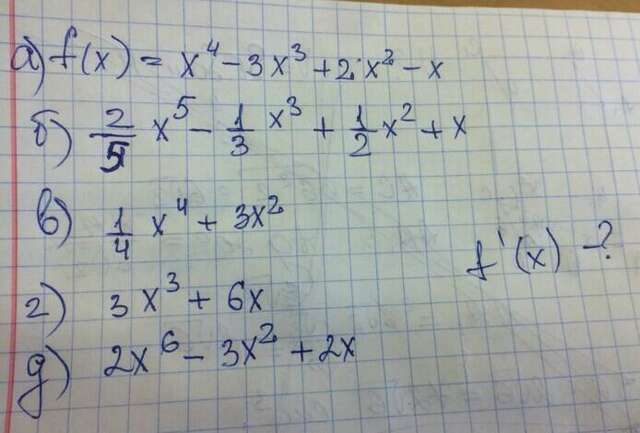 а) f(x) = x⁴ - 3x³ + 2x² - x
б) 2/5 x⁵ - 1/3 x³ + 1/2 x² + x
в) 1/4 x⁴ + 3x²
f'(x) - ?
г) 3x³ + 6x
д) 2x⁶ - 3x² + 2x